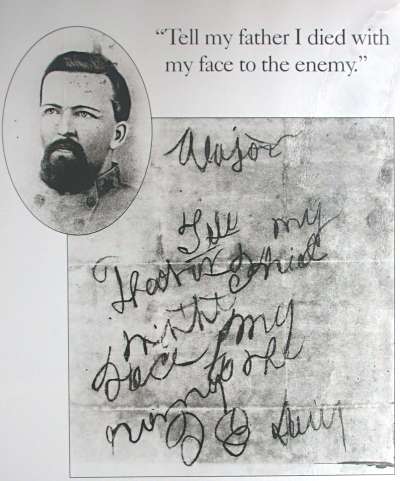 “Tell my father I died with
my face to the enemy.”
Major
Tell my
Father I died
with my
face to the
enemy